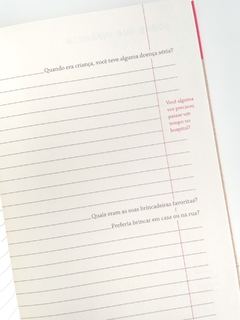 Quando era criança, você teve alguma doença séria?
Você alguma
vez precisou
passar um
tempo no
hospital?
Quais eram as suas brincadeiras favoritas?
Preferia brincar em casa ou na rua?